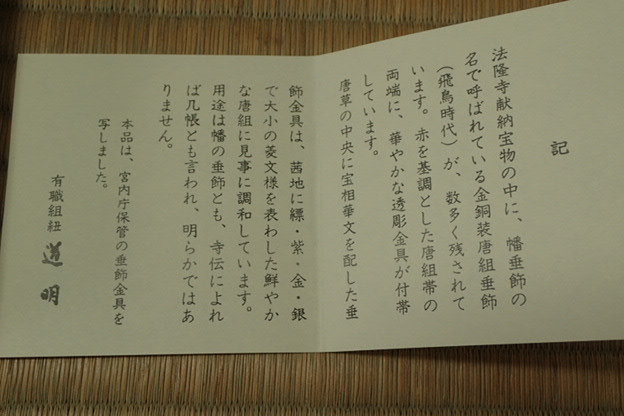 記
法隆寺献納宝物の中に、幡垂飾の
名で呼ばれている金銅装唐組垂飾
（飛鳥時代）が、数多く残されて
います。赤を基調とした唐組帯の
両端に、華やかな透彫金具が付帯
しています。
唐草の中央に宝相華文を配した垂
飾金具は、茜地に縹・紫・金・銀
で大小の菱文様を表わした鮮やか
な唐組に見事に調和しています。
用途は幡の垂飾とも、寺伝によれ
ば几帳とも言われ、明らかではあ
りません。
本品は、宮内庁保管の垂飾金具を
写しました。
有職組紐 道明